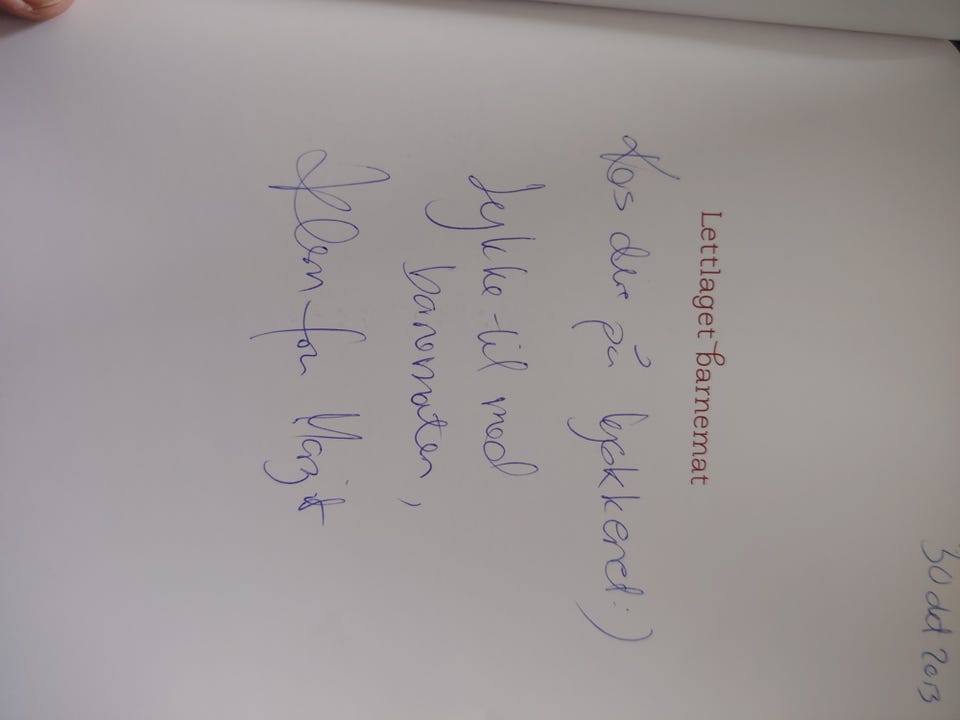 30 okt 2013
Lettlaget barnemat
Kos der på kjøkkenet :)
Lykke til med
barnematen,
Klem fra Margit